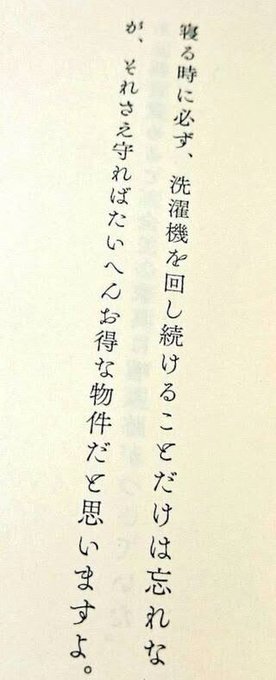 寝る時に必ず、洗濯機を回し続けることだけは忘れな
が、それさえ守ればたいへんお得な物件だと思いますよ。